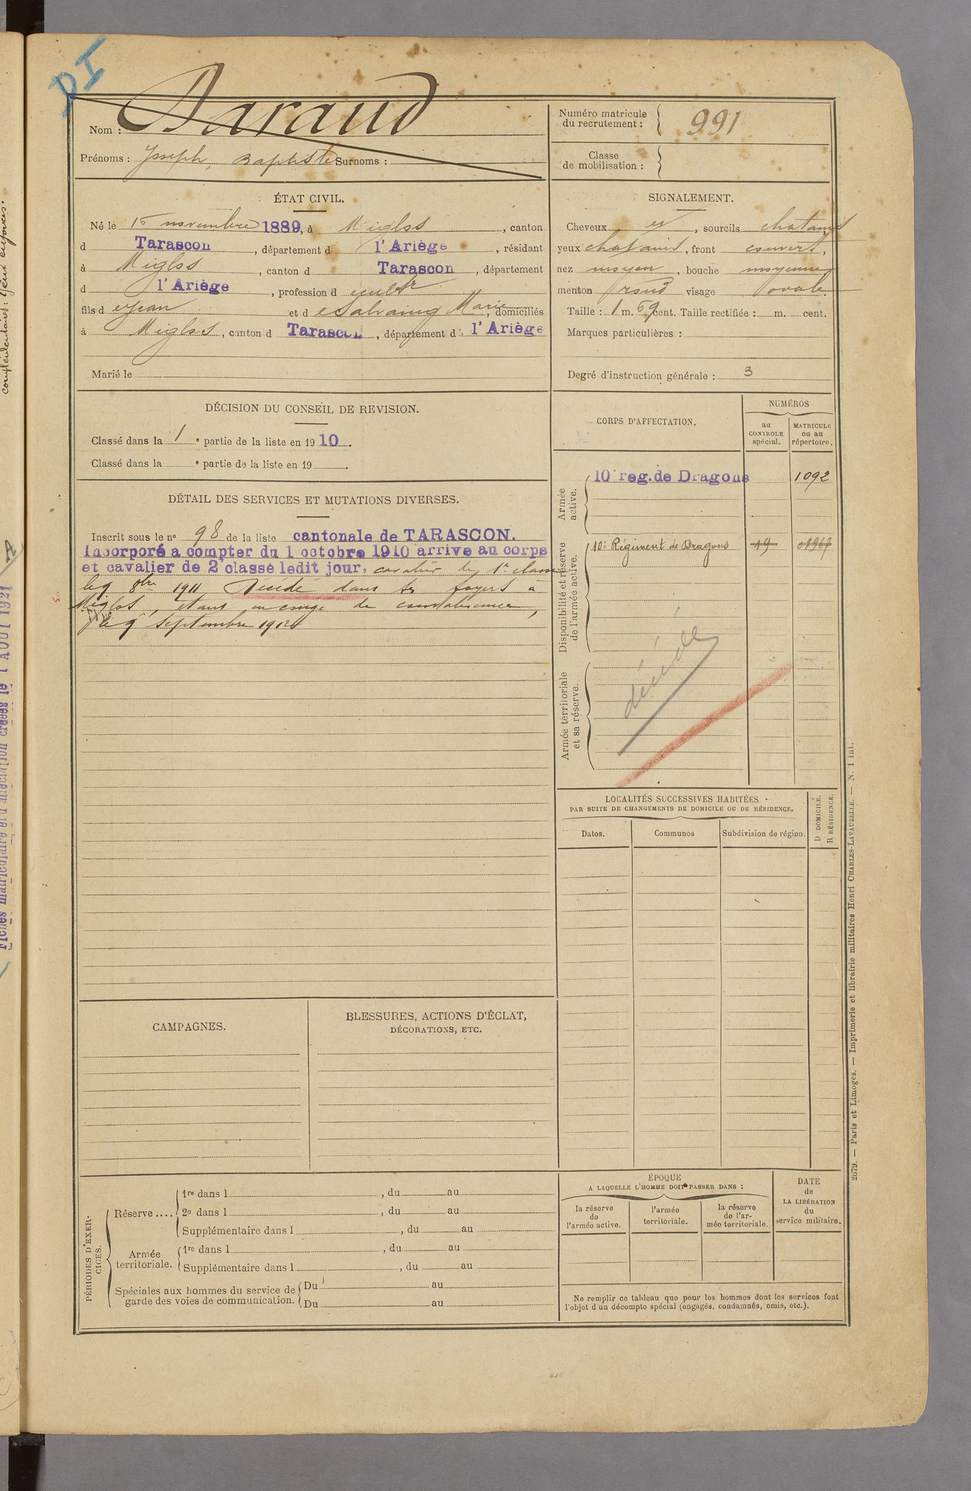 DI
Nom : Daraud
Prénoms : Joseph, Baptiste Surnoms :
Numéro matricule du recrutement : 991
Classe de mobilisation :
ÉTAT CIVIL.
Né le 15 novembre 1889, à Miglos, canton
d Tarascon, département d l'Ariège, résidant
à Miglos, canton d Tarascon, département
d l'Ariège, profession d cultr
fils d Jean et d Marie, domiciliés
à Miglos, canton d Tarascon, département d l'Ariège
Marié le
SIGNALEMENT.
Cheveux et, sourcils chatains
yeux chatains, front couvert,
nez moyen, bouche moyenne
menton rond visage ovale
Taille : 1 m. 69 cent. Taille rectifiée : m. cent.
Marques particulières :
Degré d'instruction générale : 3
DÉCISION DU CONSEIL DE REVISION.
Classé dans la 1 e partie de la liste en 1910.
Classé dans la e partie de la liste en 19 .
DÉTAIL DES SERVICES ET MUTATIONS DIVERSES.
Inscrit sous le n° 98 de la liste cantonale de TARASCON.
Incorporé a compter du 1 octobre 1910 arrive au corps
et cavalier de 2e classe ledit jour, cavalier de 1e classe
le 9 8bre 1911 Décédé dans ses foyers à
Miglos, étant en congé de convalescence,
le 9 septembre 1912
CORPS D'AFFECTATION.
NUMÉROS
au CONTROLE spécial.
MATRICULE ou au répertoire.
Armée active.
10e reg. de Dragons 1092
Disponibilité et réserve de l'armée active.
10e Régiment de Dragons 19
décédé
Armée territoriale et sa réserve.
LOCALITÉS SUCCESSIVES HABITÉES
PAR SUITE DE CHANGEMENTS DE DOMICILE OU DE RÉSIDENCE.
Dates.
Communes
Subdivision de région.
D DOMICILE.
R RÉSIDENCE.
CAMPAGNES.
BLESSURES, ACTIONS D'ÉCLAT,
DÉCORATIONS, ETC.
PÉRIODES D'EXERCICES.
Réserve ....
1re dans l , du au
2e dans l , du au
Supplémentaire dans l , du au
Armée territoriale.
1re dans l , du au
Supplémentaire dans l , du au
Spéciales aux hommes du service de garde des voies de communication.
Du au
Du au
ÉPOQUE
A LAQUELLE L'HOMME DOIT PASSER DANS :
la réserve de l'armée active.
l'armée territoriale.
la réserve de l'armée territoriale.
DATE de LA LIBÉRATION du service militaire.
Ne remplir ce tableau que pour les hommes dont les services font
l'objet d'un décompte spécial (engagés, condamnés, omis, etc.).
2079. — Paris et Limoges. — Imprimerie et librairie militaires Henri CHARLES-LAVAUZELLE. — N. 1 int.